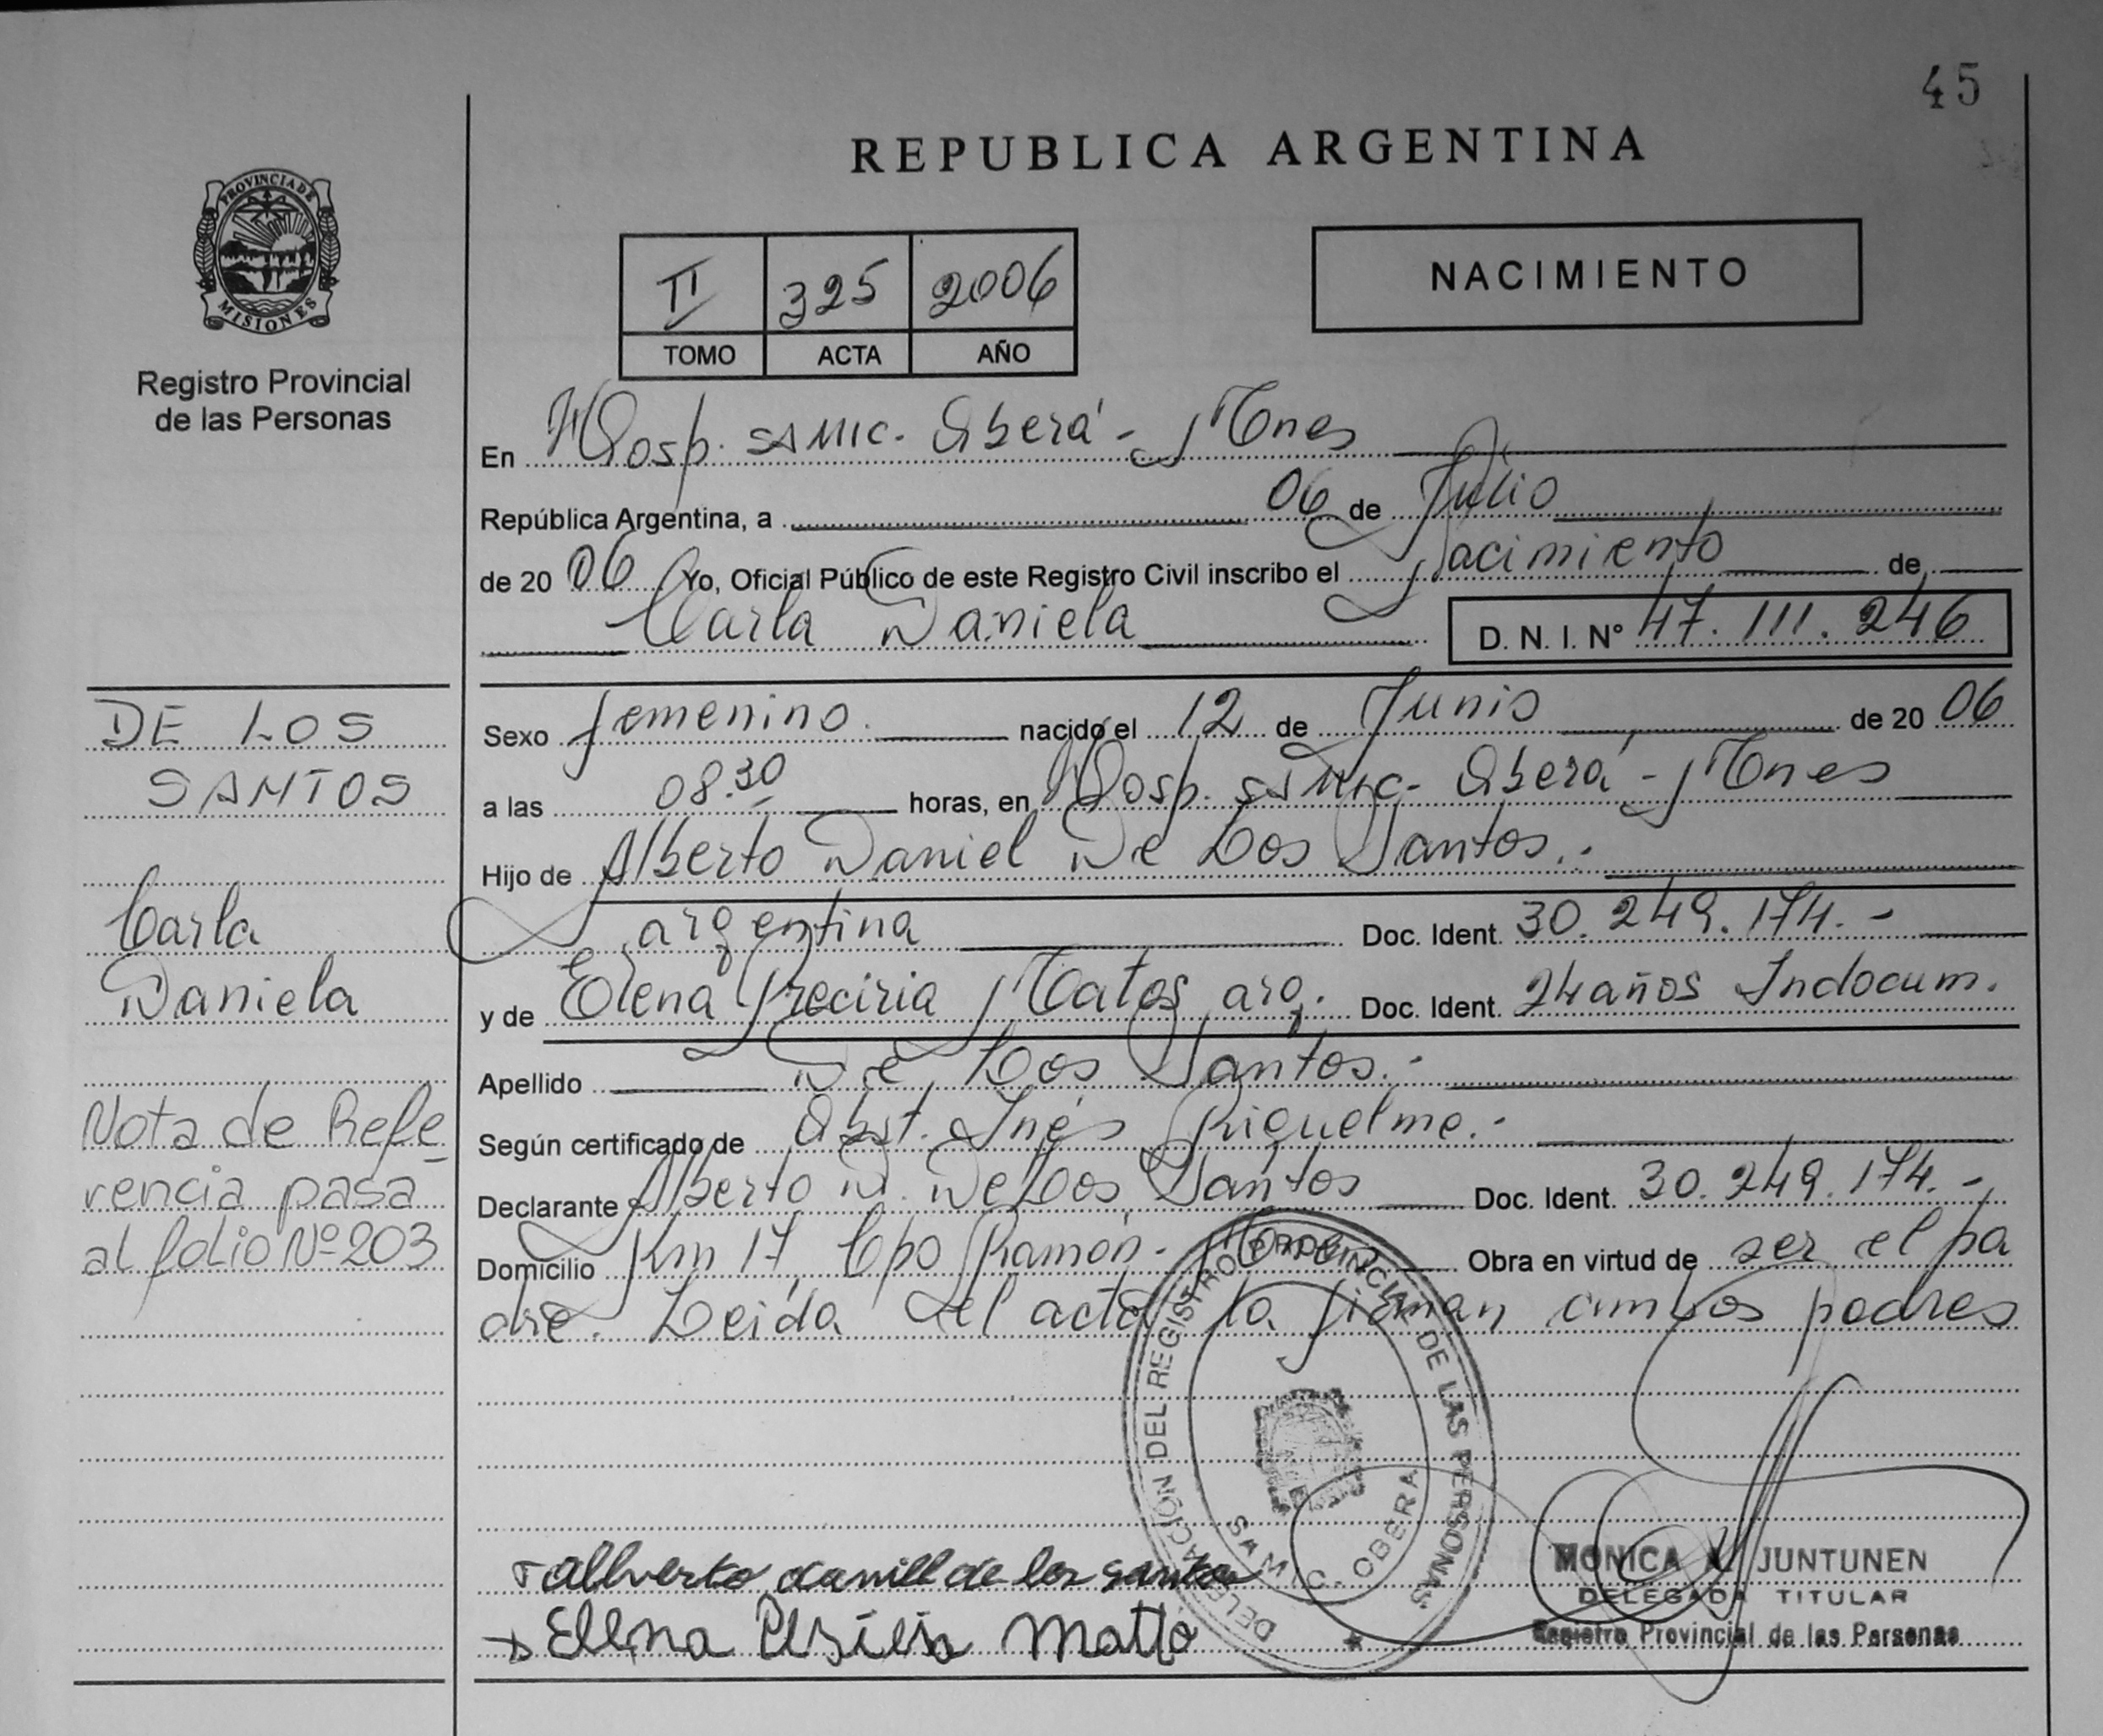 45
REPUBLICA ARGENTINA
PROVINCIA DE
MISIONES
Registro Provincial
de las Personas
II 325 2006
TOMO ACTA AÑO
NACIMIENTO
En Hosp. SAMIC. Oberá - Mnes
República Argentina, a 06 de Julio
de 20 06 Yo, Oficial Público de este Registro Civil inscribo el Nacimiento de
Carla Daniela D. N. I. Nº 47.111.246
DE LOS
SANTOS
Carla
Daniela
Nota de Refe
rencia pasa
al folio Nº 203
Sexo femenino. nacido el 12 de Junio de 20 06
a las 08.30 horas, en Hosp. SAMIC- Oberá - Mnes
Hijo de Alberto Daniel De Los Santos.-
argentina Doc. Ident. 30.249.174.-
y de Elena Matos arg. Doc. Ident. 24 años Indocum.
Apellido De Los Santos.-
Según certificado de Obst. Inés Riquelme.-
Declarante Alberto D. De Los Santos Doc. Ident. 30.249.174.-
Domicilio Km 17, Cpo Ramón - Obra en virtud de ser el pa
dre. Leida el acta la firman ambos padres
DELEGACIÓN DEL REGISTRO PROVINCIAL DE LAS PERSONAS
SAMIC. OBERA
Elena
MONICA JUNTUNEN
DELEGADA TITULAR
Registro Provincial de las Personas